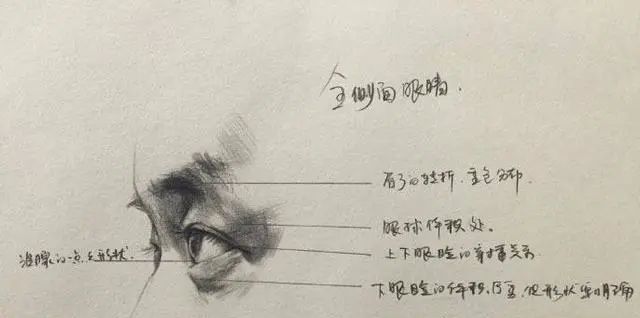 全侧面眼睛.
眉弓的转折.重色分布.
眼球体积处。
上下眼睑的穿插关系
泪腺的一点点形状.
下眼睑的体积,形状要明确